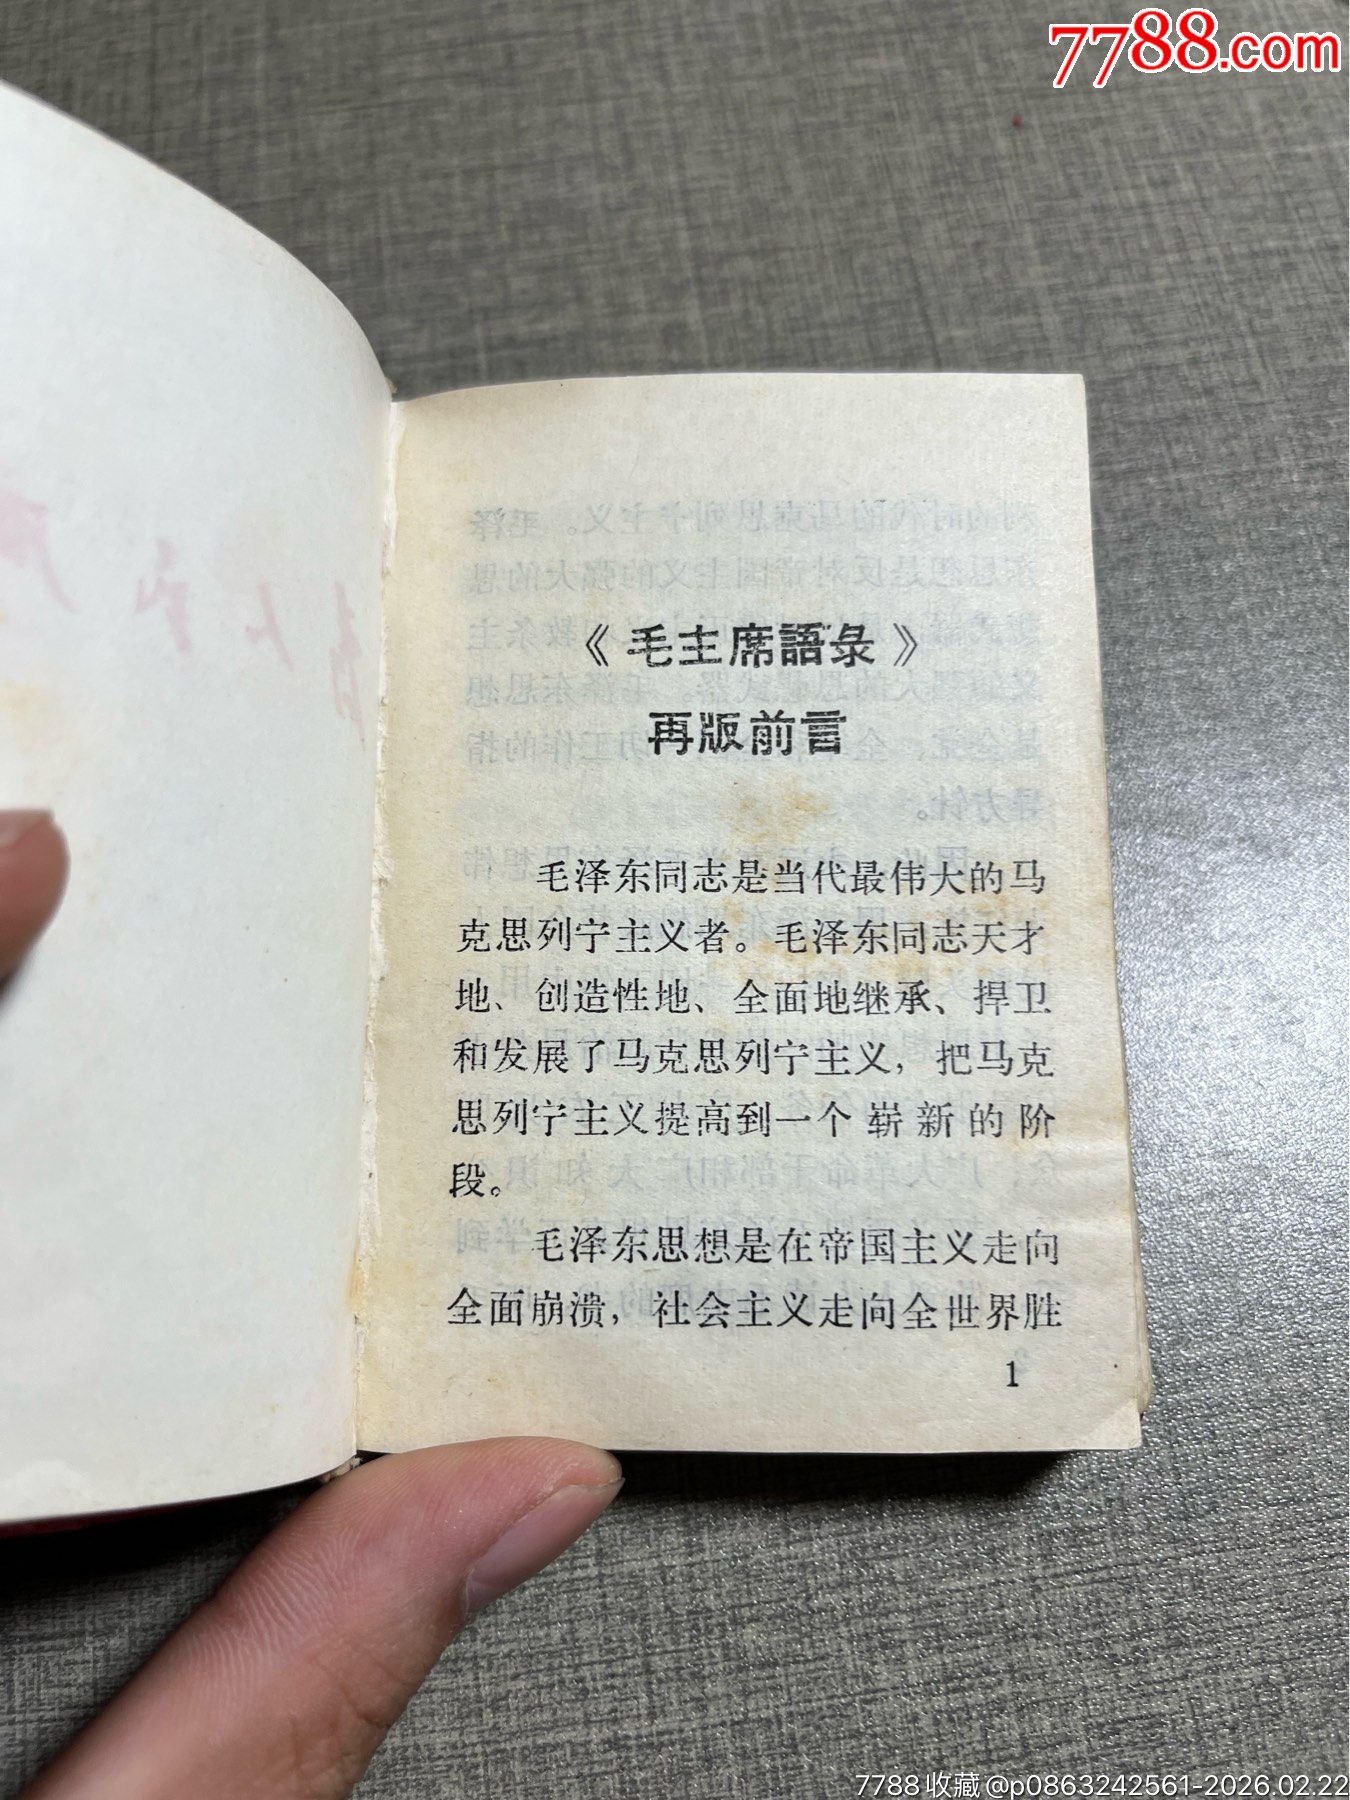 7788.com
《毛主席語录》
再版前言
毛泽东同志是当代最伟大的马
克思列宁主义者。毛泽东同志天才
地、创造性地、全面地继承、捍卫
和发展了马克思列宁主义，把马克
思列宁主义提高到一个崭新的阶
段。
毛泽东思想是在帝国主义走向
全面崩溃，社会主义走向全世界胜
1
7788收藏@p0863242561-2026.02.22